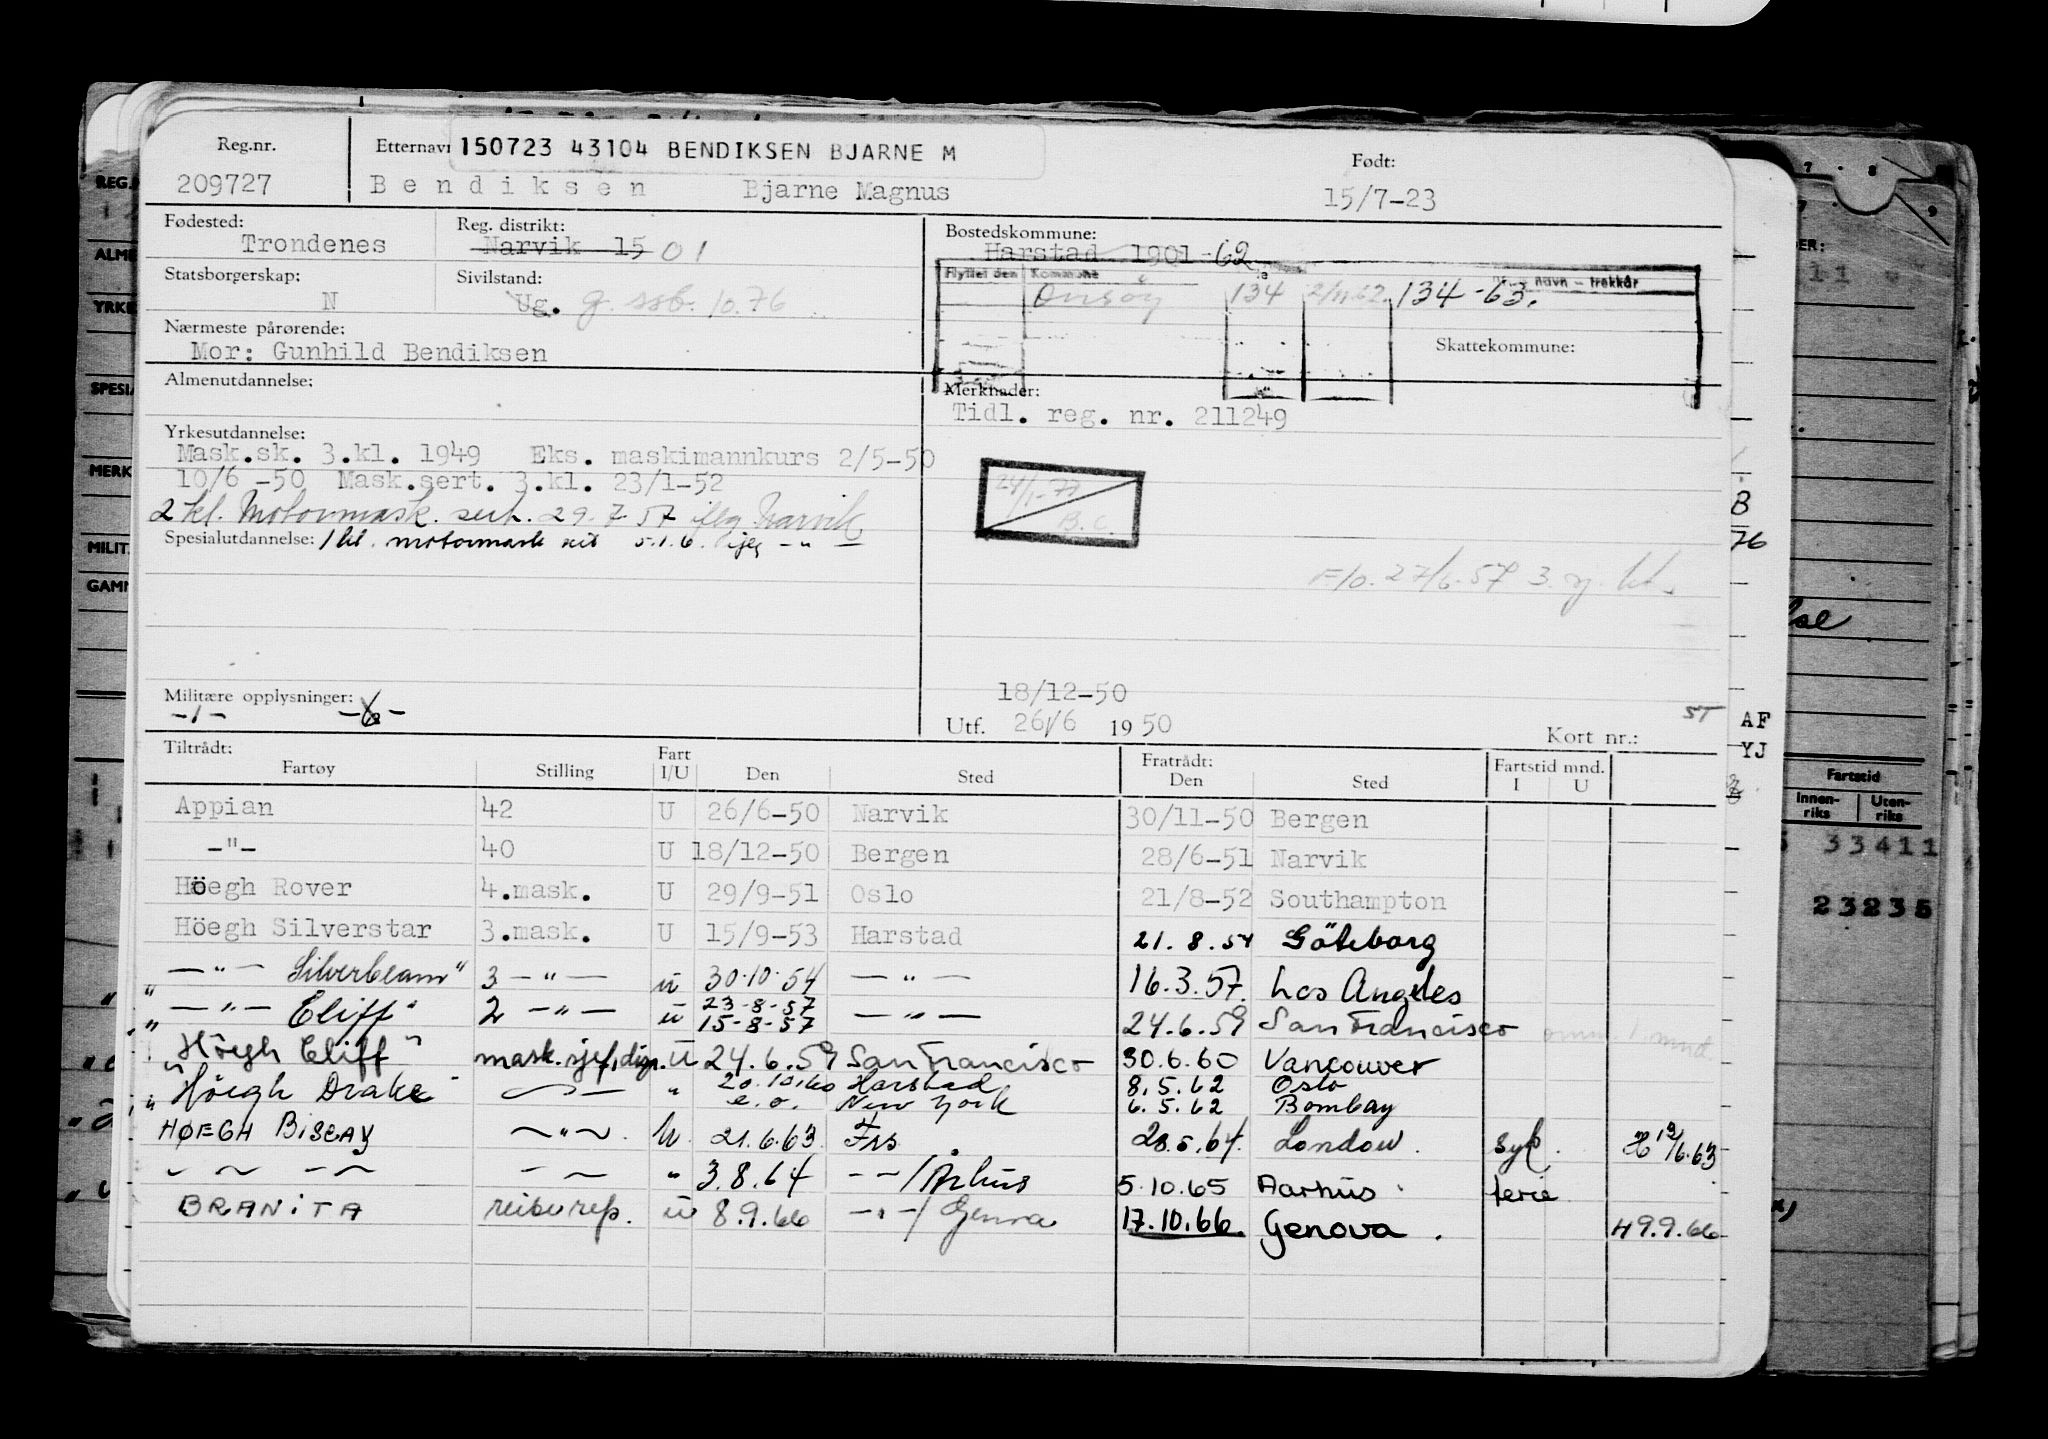 Reg.nr. Etternavn 150723 43104 BENDIKSEN BJARNE M Født:
209727 Bendiksen Bjarne Magnus 15/7-23
Fødested: Reg. distrikt: Bostedskommune:
Trondenes Narvik 15 01 Harstad 1901 -62
Statsborgerskap: Sivilstand: Flyttet den Kommune navn - trekkår
N Ug. g. ssb. 10.76 Onsøy 134 2/11-62 134-63.
Nærmeste pårørende: Skattekommune:
Mor: Gunhild Bendiksen
Almenutdannelse: Merknader:
Tidl. reg. nr. 211249
Yrkesutdannelse:
Mask.sk. 3.kl. 1949 Eks. maskimannkurs 2/5-50
10/6 -50 Mask.sert. 3.kl. 23/1-52
24/1-77
B.C.
2 kl. Motormask. sert. 29.7.57 Narvik
Spesialutdannelse: 1 kl. motormask 5.1.6. — " —
27/6.57 3.
Militære opplysninger: 18/12-50
-1- Utf. 26/6 1950 Kort nr.: ST
Tiltrådt: Fart Fratrådt: Fartstid mnd.
Fartøy Stilling I/U Den Sted Den Sted I U
Appian 42 U 26/6-50 Narvik 30/11-50 Bergen
-"- 40 U 18/12-50 Bergen 28/6-51 Narvik
Höegh Rover 4.mask. U 29/9-51 Oslo 21/8-52 Southampton
Höegh Silverstar 3.mask. U 15/9-53 Harstad 21.8.54 Göteborg
" — " — Silverbeam" 3 — " — u 30.10.54 — " — 16.3.57. Los Angeles
" — " — Cliff" 2 — " — u 23-8-57 15-8-57 — " — 24.6.59 San Francisco
"Höegh Cliff" mask.sjef, disp. U 24.6.59 San Francisco 30.6.60 Vancouver
"Höegh Drake" — " — " 20.10.60 Harstad 8.5.62 Oslo
e.o. New York 6.5.62 Bombay
HØEGH BISCAY — " — u. 21.6.63 Frs 28.5.64. London. syk. H 19/6.63
— " — — " — " 3.8.64 — " — / Århus 5.10.65 Aarhus ferie
BRANITA reiserep. u 8.9.66 — " — / Genova 17.10.66. Genova. H9.9.66
REG.
ALME
YRKE
SPESIA
MERK
MILIT
GAMM
B
76
AF
YJ
Fartstid
Innen-riks Uten-riks
33411
23235